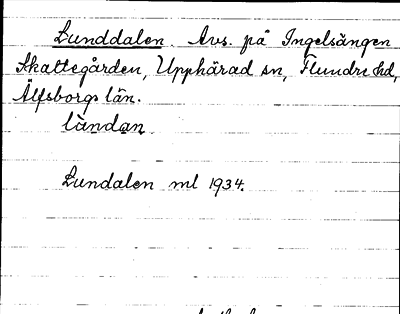 Lunddalen. Avs. på Ingelsängen
Skattegården, Upphärad sn, Flundre hd,
Älfsborgs län.
lùndan
Lundalen ml 1934.